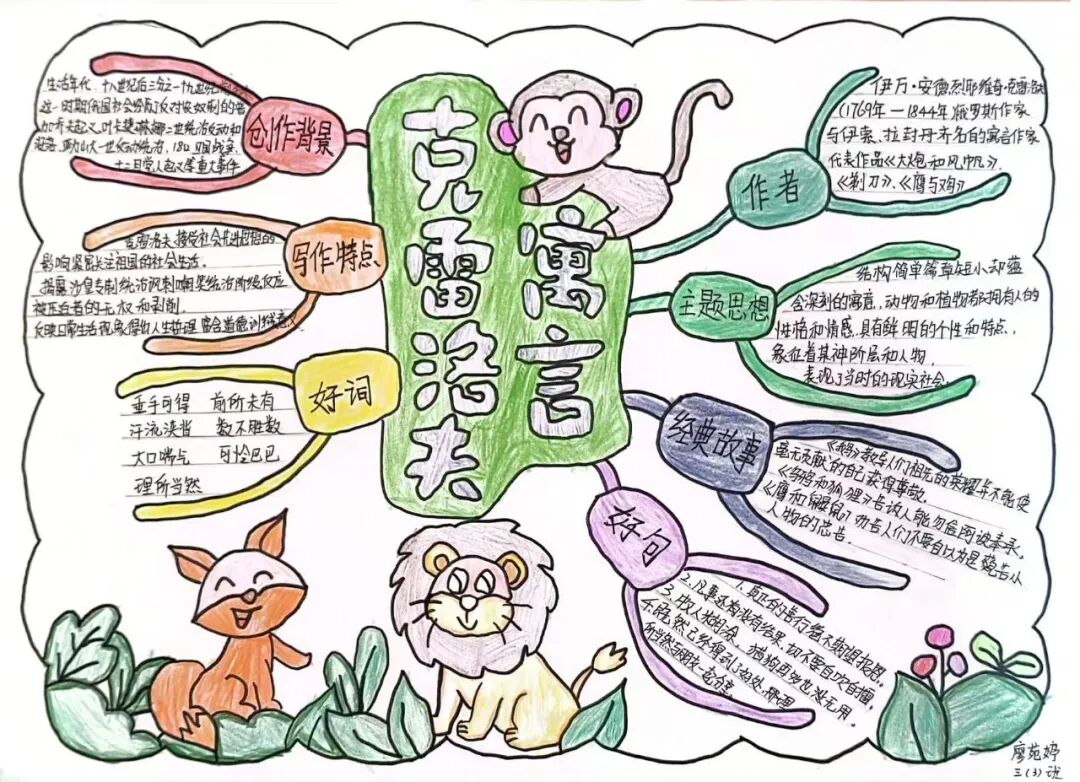 克雷洛夫
寓言
创作背景
生活年代:十八世纪后三分之一十九世纪
这一时期俄国社会经历了反对农奴制的普
加乔夫起义,叶卡捷琳娜二世统治反动和
亚历山大一世反动统治,1812卫国战争,
十二月党人起义等重大事件
写作特点
克雷洛夫接受社会先进思想的
影响紧密关注祖国的社会生活。
揭露沙皇专制统治讽刺嘲笑统治阶级,反应
被压迫者的无权和剥削。
反映日常生活现象得出人生哲理富含道德训练意义
好词
垂手可得 前所未有
汗流浃背 数不胜数
大口喘气 可怜巴巴
理所当然
作者
伊万·安德烈耶维奇·克雷洛夫
(1769年一1844年俄罗斯作家
与伊索、拉封丹齐名的寓言作家
代表作品《大炮和风帆》、
《剃刀》、《鹰与鸡》
主题思想
结构简单篇章短小却蕴
含深刻的寓意,动物和植物都拥有人的
性格和情感,具有鲜明的个性和特点,
象征着某种阶层和人物,
表现了当时的现实社会。
经典故事
《鹅》教导人们祖先的荣耀并不能使
毫无贡献的自己获得尊敬。
《乌鸦和狐狸》告诫人能勿会两被
《鹰和鼹鼠》劝告人们不要自以为是藐告小
人物的忠告。
好句
1.真正的善行每不敢望报恩。
2.凡事还有没有结果,切不要自吹自擂,
3.敌人放纽会,猫狗再
不既然已经得到了好处,那理
所当然与朋友一起分享
廖苑婷
三(3)